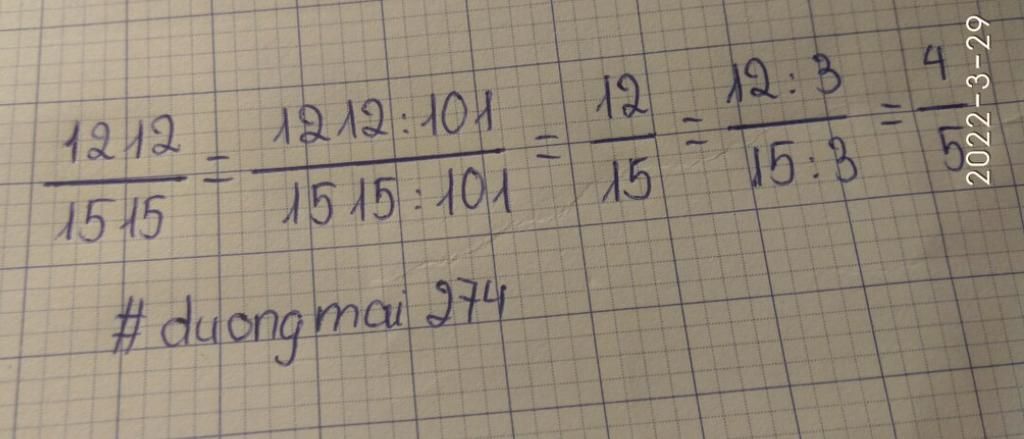 1212/1515 = 1212:101/1515:101 = 12/15 = 12:3/15:3 = 4/5
# duongmai 274
2022-3-29